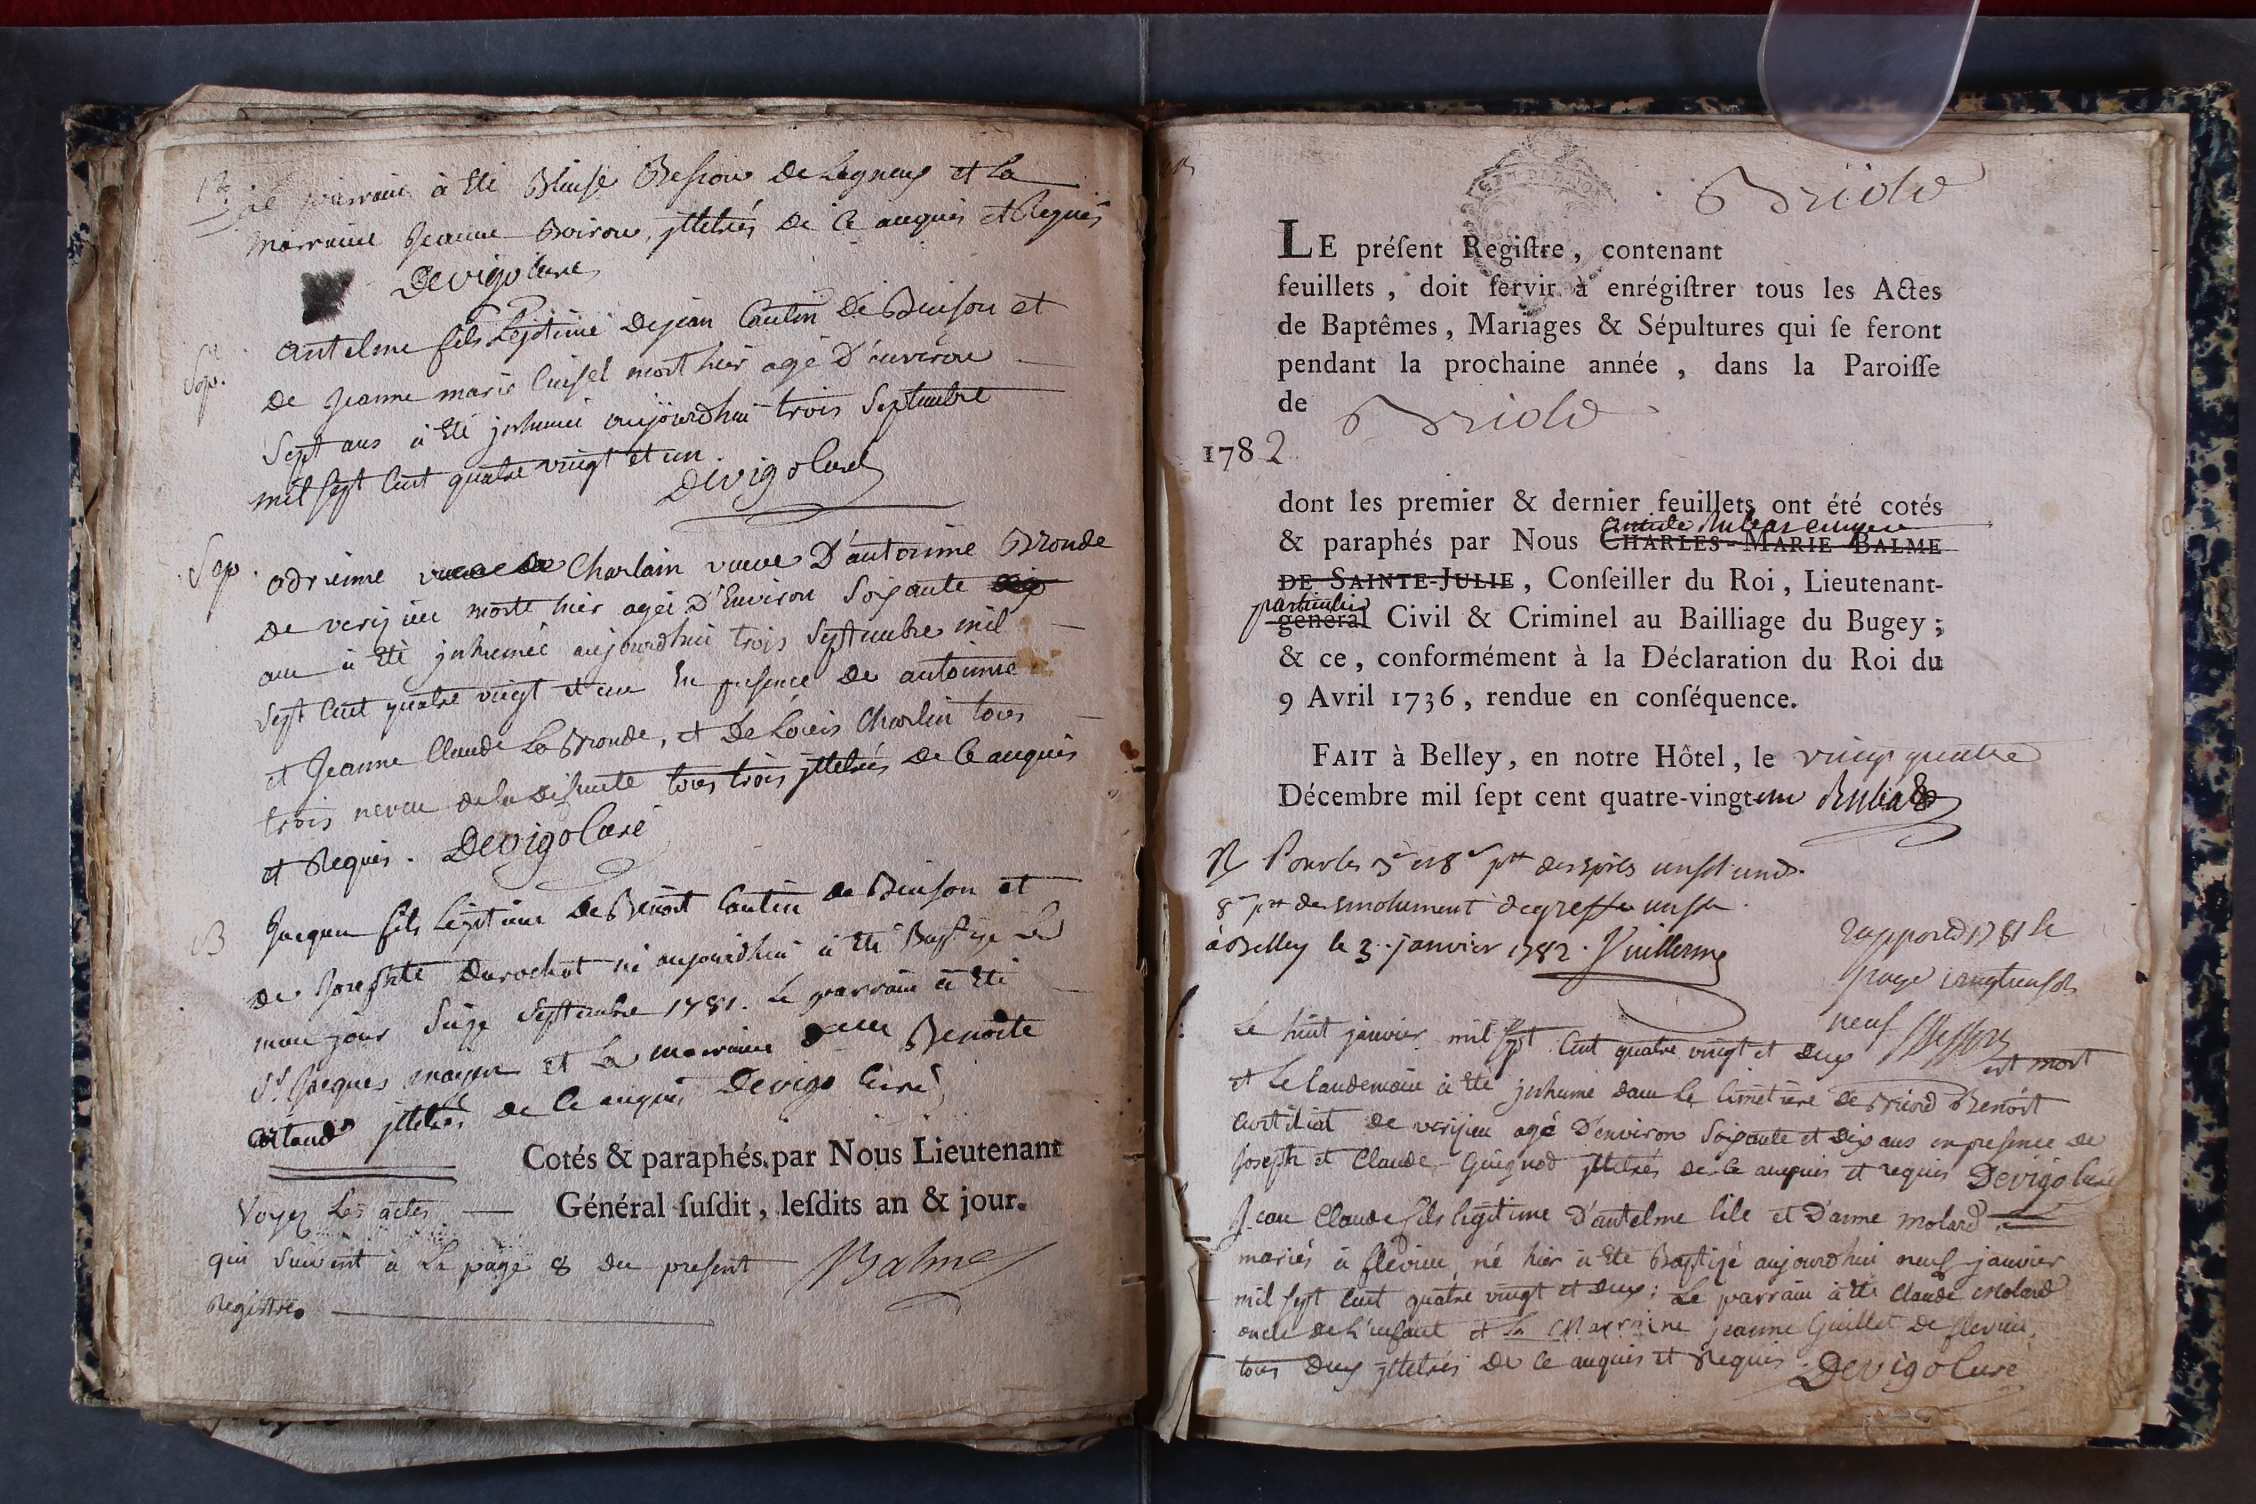 parrain à été Blaise Besson de Lagneu et la
marraine Jeanne Boiron, jlletrés de ce anquis et Requis
Devigo Curé
Sep.
Antelme fils legitime de jean Cantin de Buison et
de Jeanne marie mort hier agé D'environ
Sept ans à été jnhumé aujourdhui trois Septembre
mil sept cent quatre vingt et un.
Devigo Curé
Sep.
odrienne Charlain vueve D'antoinne Bronde
de verizieu morte hier ageé D'Environ Soixante
ans à été jnhumée aujourdhui trois Septembre mil
sept cent quatre vingt et un En presence de antoinne
et Jeanne Claude La Bronde, et de Louis Charlin tous
trois neveu de la defunte tous trois jlletrés de ce anquis
et Requis. Devigo Curé
B
Jacques fils legitime de Benoit Cantin de Buison et
de Josephte Durochat né aujourdhui à été Baptizé le
meme jour Seize Septembre 1781. Le parrain à été
Sr. Jacques et La marraine Benoite
jlletrés de ce anquis Devigo Curé
Cotés & paraphés par Nous Lieutenant
Général ſuſdit, leſdits an & jour.
Voyez Les actes
qui suivent à la page 8 du present
Registre.
Balme
Briord
LE préſent Regiſtre, contenant
feuillets, doit ſervir à enrégiſtrer tous les Actes
de Baptêmes, Mariages & Sépultures qui ſe feront
pendant la prochaine année, dans la Paroiſſe
de Briord
1782
dont les premier & dernier feuillets ont été cotés
& paraphés par Nous CHARLES-MARIE BALME
DE SAINTE-JULIE, Conſeiller du Roi, Lieutenant-
particulier
général Civil & Criminel au Bailliage du Bugey;
& ce, conformément à la Déclaration du Roi du
9 Avril 1736, rendue en conſéquence.
FAIT à Belley, en notre Hôtel, le vingt quatre
Décembre mil ſept cent quatre-vingt un
à Belley le 3 janvier 1782. Vuillerme
Le huit janvier mil sept cent quatre vingt et deux est mort
et le landemain à été jnhumé dans le cimetiere de Briord Benoit
de verizieu agé D'environ Soixante et dix ans en presence de
Joseph et Claude Guignod jlletrés de ce anquis et requis Devigo Curé
Jean Claude fils legitime D'antelme et D'anne Molard
mariés à flevieu, né hier à été Baptizé aujourdhui neuf janvier
mil sept cent quatre vingt et deux; Le parrain à été Claude Molard
oncle de L'enfant et la Marraine jeanne Guillet de flevieu,
tous Deux jlletrés de ce anquis et Requis. Devigo Curé